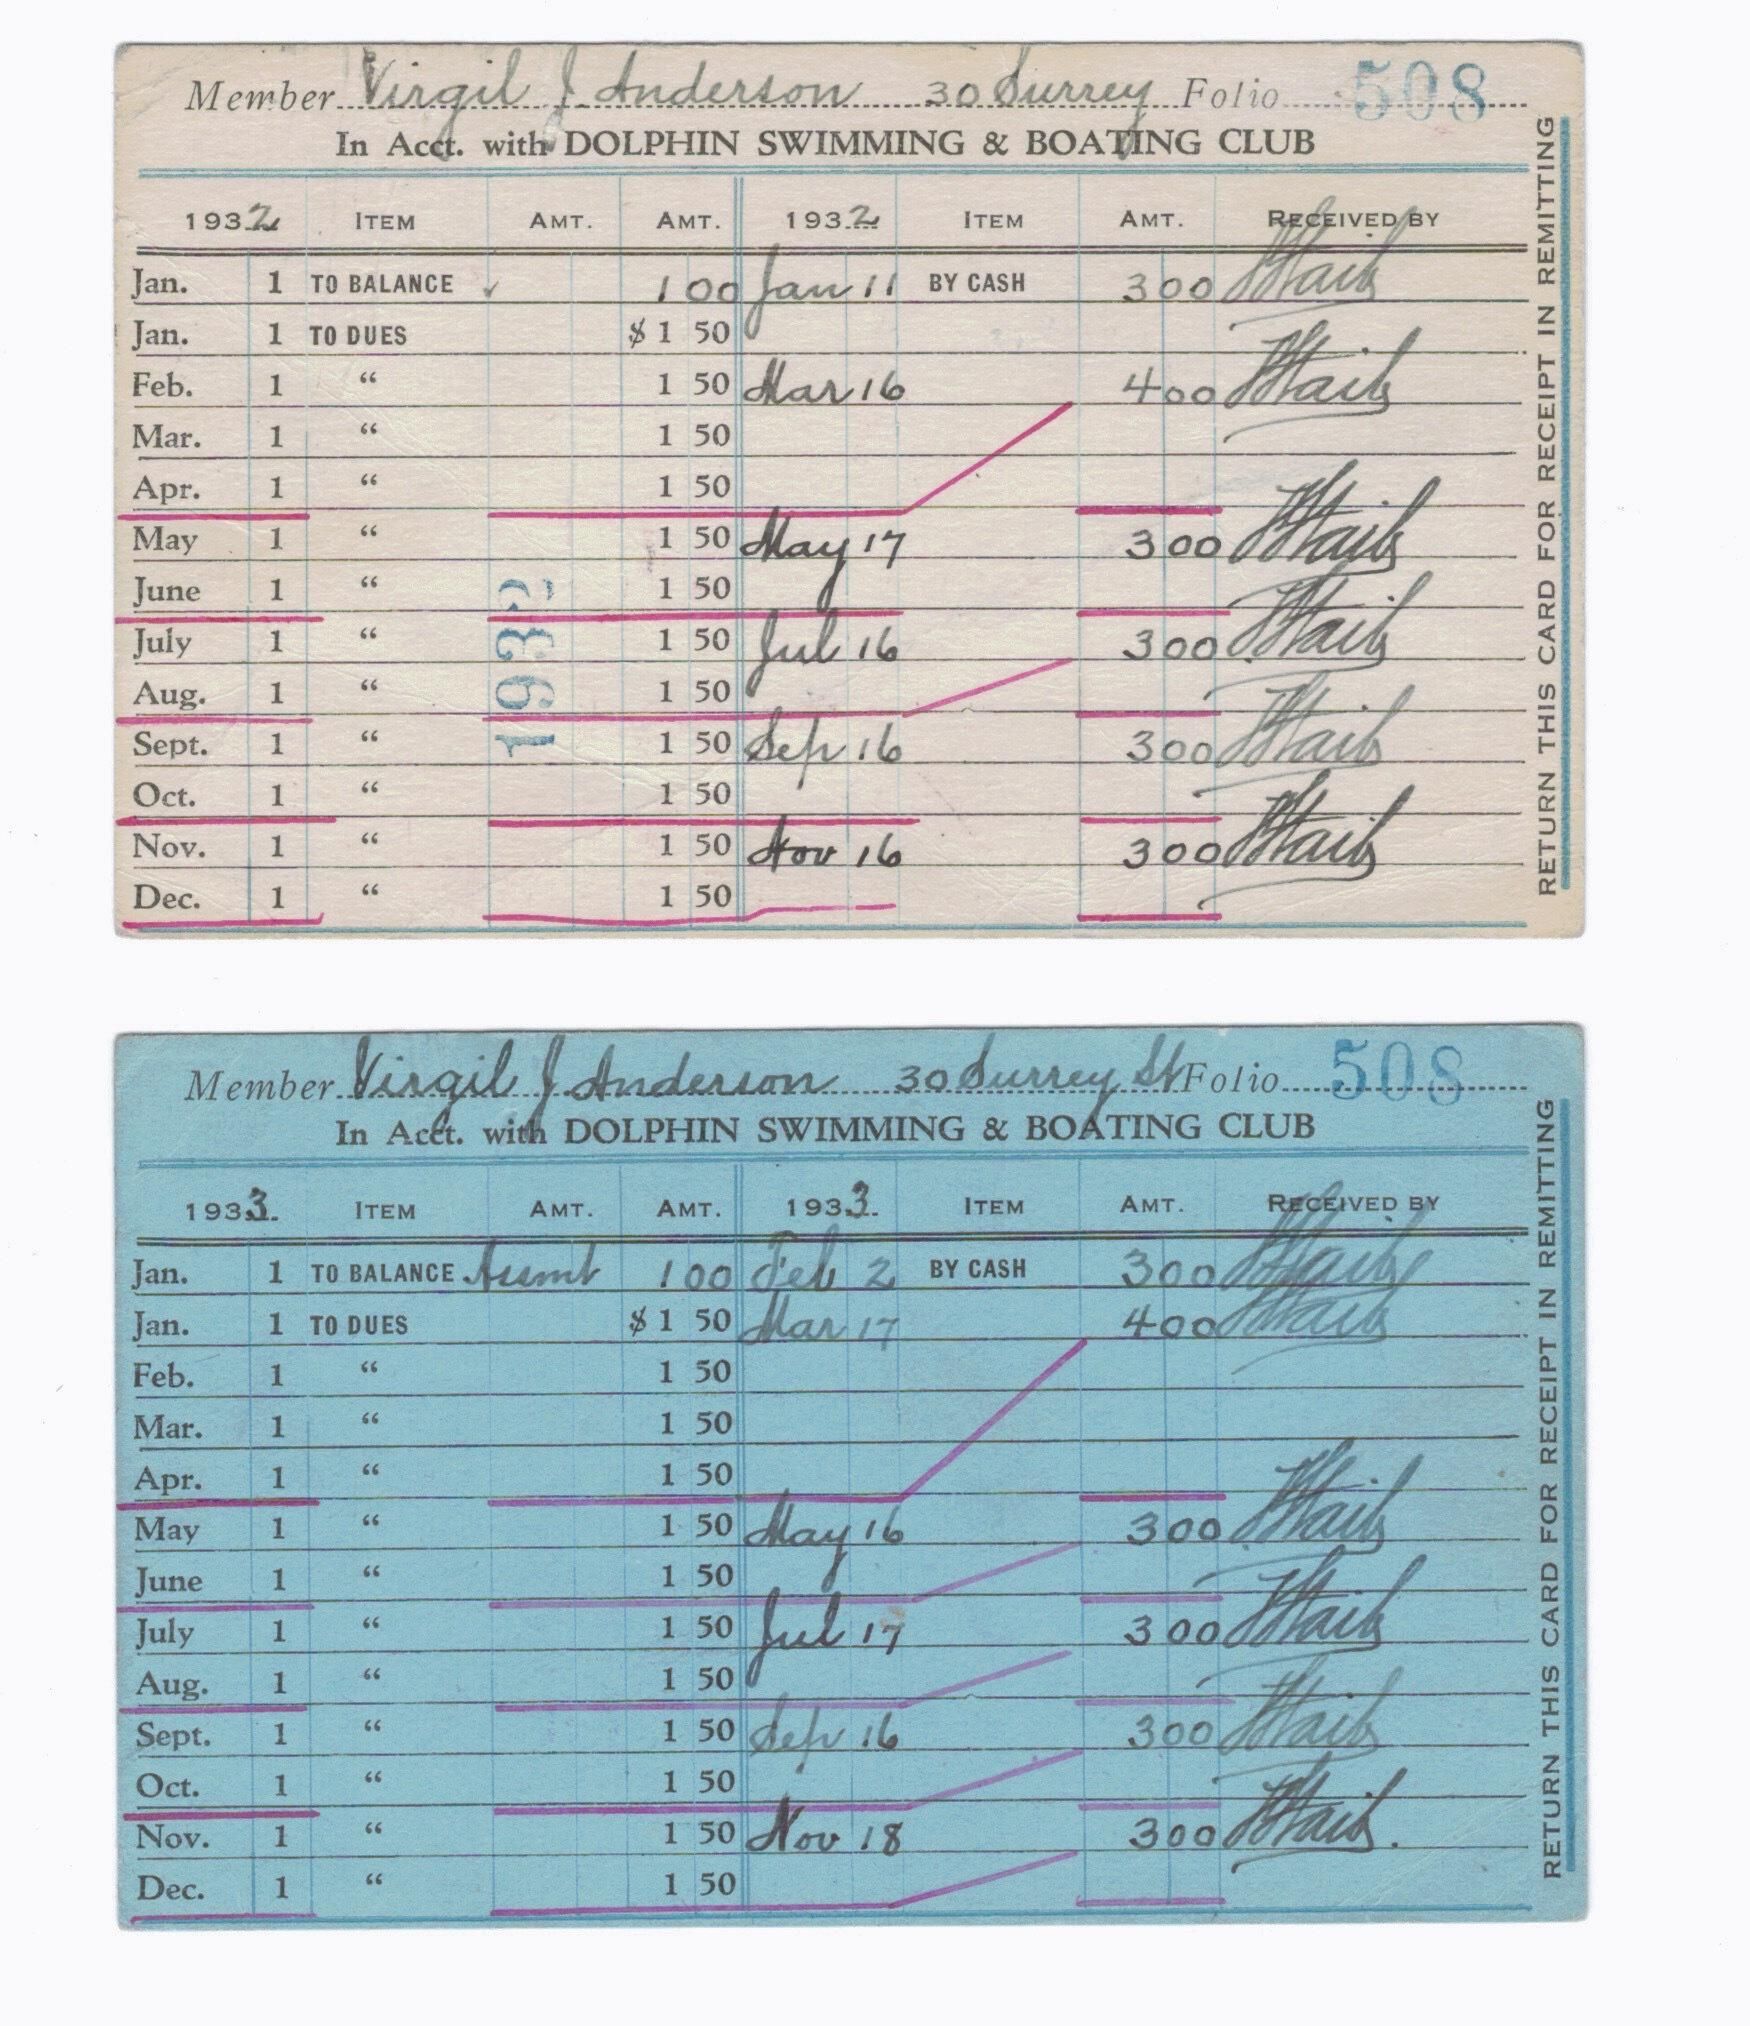 Member Virgil J Anderson 30 Surrey Folio 508
In Acct. with DOLPHIN SWIMMING & BOATING CLUB
1932 ITEM AMT. AMT. 1932 ITEM AMT. RECEIVED BY
Jan. 1 TO BALANCE ✓ 1 00 Jan 11 BY CASH 3 00
Jan. 1 TO DUES $ 1 50
Feb. 1 “ 1 50 Mar 16 4 00
Mar. 1 “ 1 50
Apr. 1 “ 1 50
May 1 “ 1 50 May 17 3 00
June 1 “ 1 50
July 1 “ 1 50 Jul 16 3 00
Aug. 1 “ 1 50
Sept. 1 “ 1 50 Sep 16 3 00
Oct. 1 “ 1 50
Nov. 1 “ 1 50 Nov 16 3 00
Dec. 1 “ 1 50
1932
RETURN THIS CARD FOR RECEIPT IN REMITTING
Member Virgil J Anderson 30 Surrey St Folio 508
In Acct. with DOLPHIN SWIMMING & BOATING CLUB
1933 ITEM AMT. AMT. 1933 ITEM AMT. RECEIVED BY
Jan. 1 TO BALANCE Assmt 1 00 Feb 2 BY CASH 3 00
Jan. 1 TO DUES $ 1 50 Mar 17 4 00
Feb. 1 “ 1 50
Mar. 1 “ 1 50
Apr. 1 “ 1 50
May 1 “ 1 50 May 16 3 00
June 1 “ 1 50
July 1 “ 1 50 Jul 17 3 00
Aug. 1 “ 1 50
Sept. 1 “ 1 50 Sep 16 3 00
Oct. 1 “ 1 50
Nov. 1 “ 1 50 Nov 18 3 00
Dec. 1 “ 1 50
RETURN THIS CARD FOR RECEIPT IN REMITTING